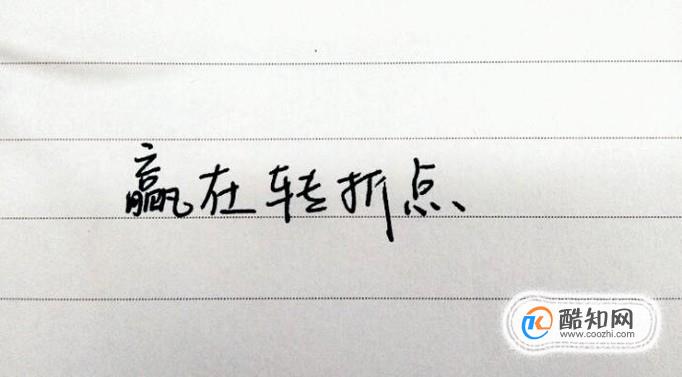 赢在转折点
酷知网
www.coozhi.com